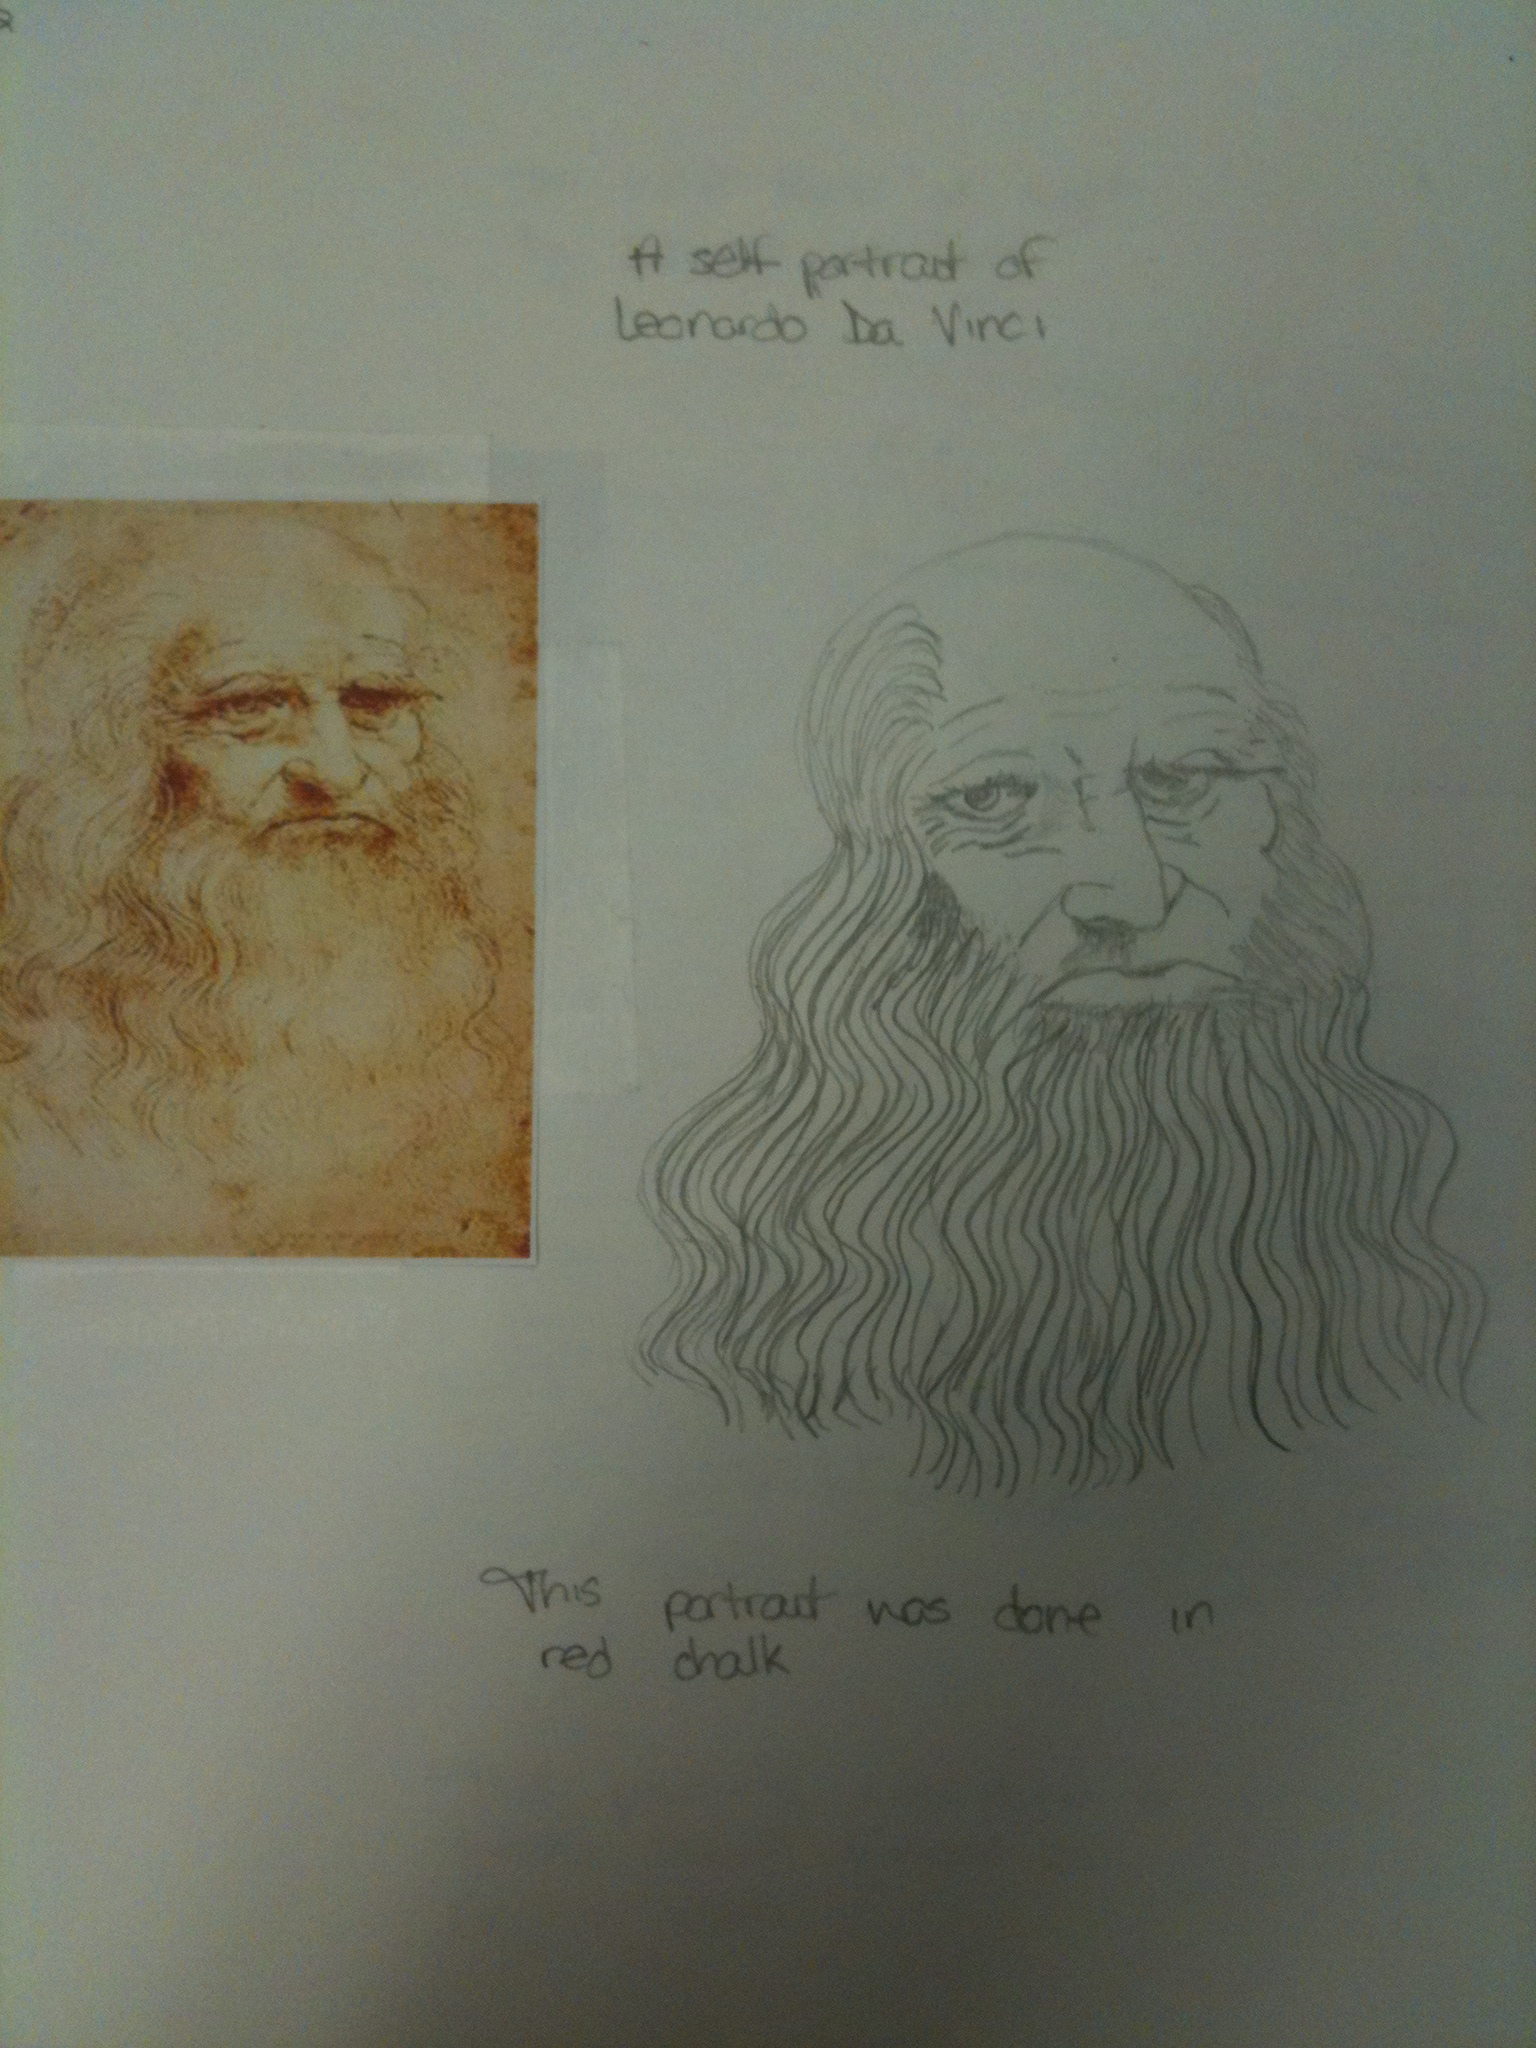 A self portrait of
Leonardo Da Vinci
This portrait was done in
red chalk